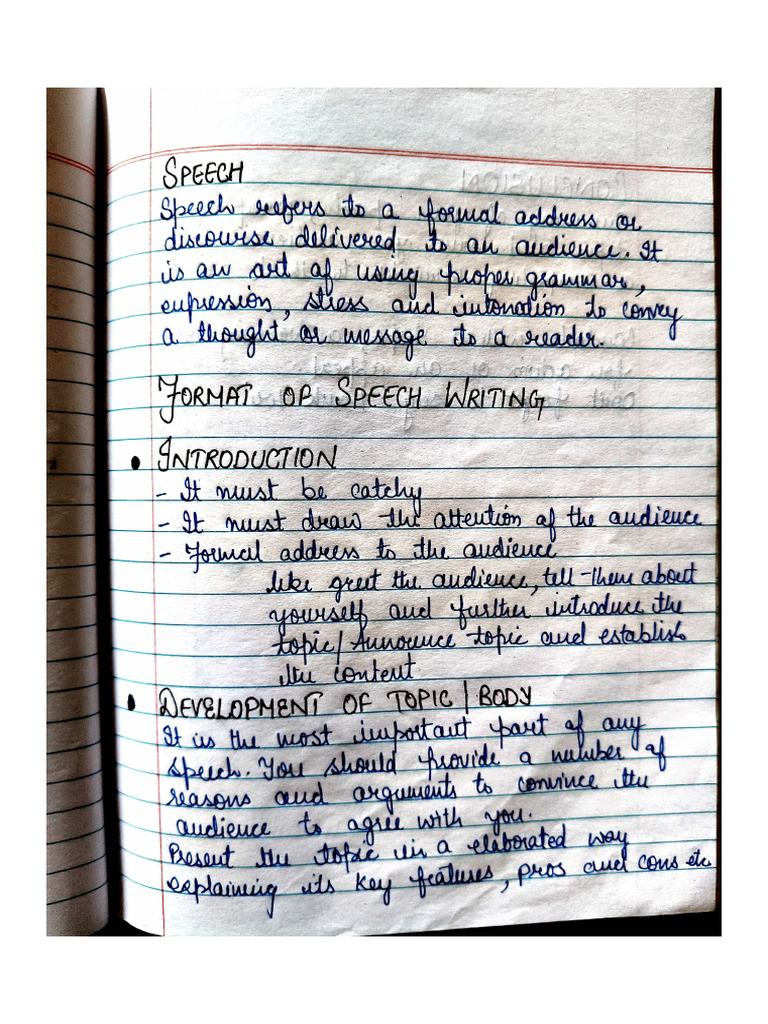 SPEECH
Speech refers to a formal address or
discourse delivered to an audience. It
is an art of using proper grammar,
expression, stress and intonation to convey
a thought or message to a reader.
FORMAT OF SPEECH WRITING
• INTRODUCTION
- It must be catchy
- It must draw the attention of the audience
- Formal address to the audience
like greet the audience, tell them about
yourself and further introduce the
topic/Announce topic and establish
the content
• DEVELOPMENT OF TOPIC | BODY
It is the most important part of any
speech. You should provide a number of
reasons and arguments to convince the
audience to agree with you.
Present the topic in a elaborated way
explaining its key features, pros and cons etc